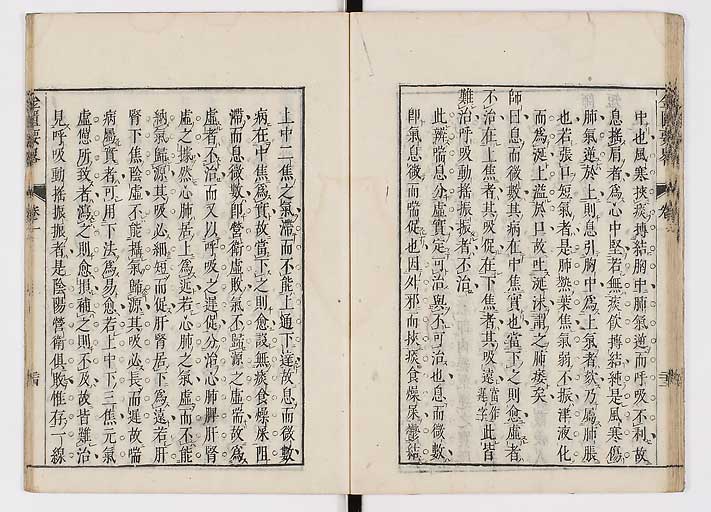 中也風寒挾痰搏結胸中肺氣逆而呼吸不利故
息搖肩者爲心中堅若無痰飲搏結純是風寒傷
肺氣逆於上則息引胸中爲上氣者欬乃屬肺脹
也若張口短氣者是肺熱葉焦氣弱不振津液化
而爲涎上溢於口故吐涎沫謂之肺痿矣
師曰息而微數其病在中焦實也當下之則愈虛者
不治在上焦者其吸促在下焦者其吸遠當作遲字此皆
難治呼吸動搖振振者不治
此辨喘息分虛實定可治與不可治也息而微數
卽氣息微而喘促也因外邪而挾痰食燥屎鬱結
上中二焦之氣滯而不能上通下達故息而微數
病在中焦爲實故當下之則愈設無痰食燥屎阻
滯而息微數卽營衛虛敗氣不歸源之虛喘故爲
虛者不治而又以呼吸之遲促分治心肺脾肝腎
虛之據然心肺居上爲近若心肺之氣虛而不能
納氣歸源其吸必細短而促肝腎居下爲遠若肝
腎下焦陰虛不能攝氣歸源其吸必長而遲故喘
病屬實者可用下法爲易愈若上中下三焦元氣
虛憊所致者瀉之則愈損補之則不及故皆難治
見呼吸動搖振振者是陰陽營衛俱敗惟存一線
金匱要畧
卷一
金匱要畧
卷一